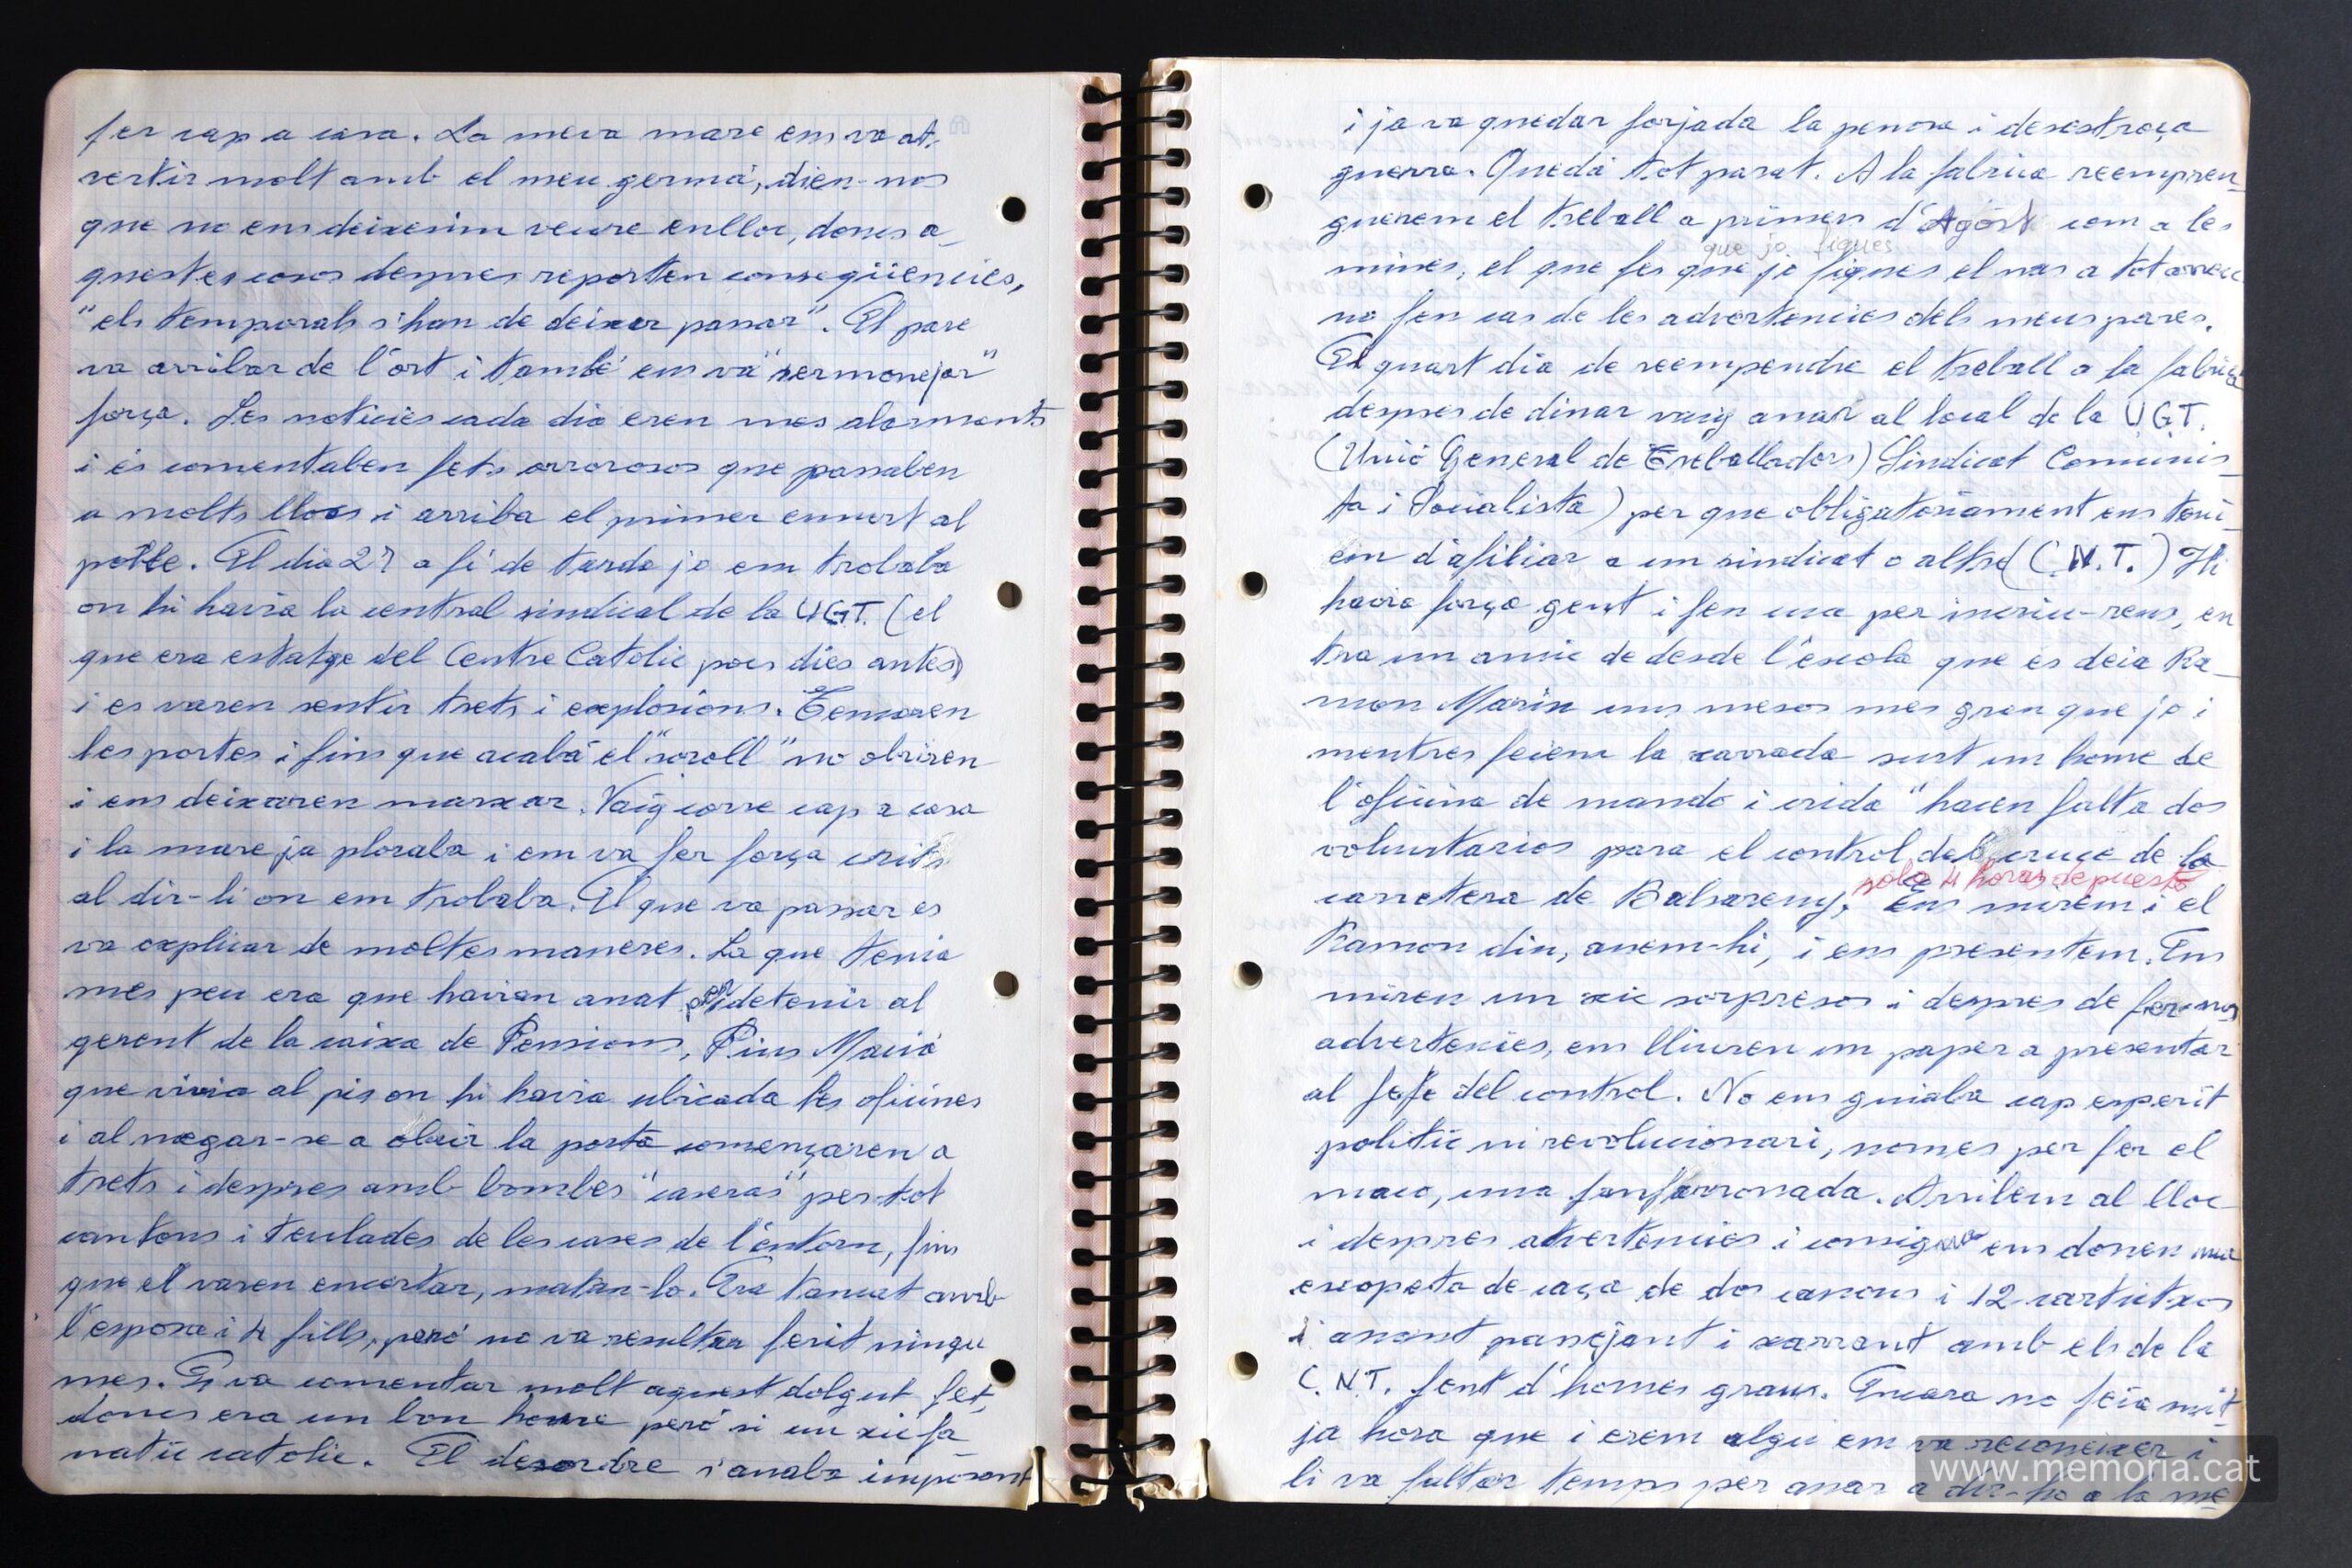 fer cap a casa. La meva mare em va at-
vertir molt amb el meu germà, dien-nos
que no ens deixesim veure enlloc, doncs a-
questes coses despres reporten conseqüències,
"els temporals s'han de deixar passar". El pare
va arribar de l'ort i també em va "sermonejar"
força. Les noticies cada dia eren mes alarmants
i es comentaben fets orrorosos que passaben
a molts llocs i arriba el primer ensurt al
poble. El dia 27 a fi de tarda jo em trobaba
on hi havia la central sindical de la UGT. (el
que era estatge del Centre Catolic pocs dies antes)
i es varen sentir trets i explosions. Tencaren
les portes i fins que acabà el "soroll" no obriren
i em deixaren marxar. Vaig corre cap a casa
i la mare ja ploraba i em va fer força crits
al dir-li on em trobaba. El que va passar es
va explicar de moltes maneres. La que tenia
mes peu era que havian anat per detenir al
gerent de la caixa de Pensions, Pius Macià
que vivia al pis on hi havia ubicada les oficines
i al negar-se a obrir la porta començaren a
trets i despres amb bombes "caseras" per tot
cantons i teulades de les cases de l'entorn, fins
que el varen encertar, matan-lo. Era tancat amb
l'esposa i 4 fills, però no va resultar ferit ningu
mes. Es va comentar molt aquest dolgut fet,
doncs era un bon home però si un xic fa-
natic catolic. El desordre s'anaba imposant
i ja va quedar forjada la penosa i desastroça
guerra. Quedà tot parat. A la fabrica reempren-
guerem el treball a primers d'Agost com a les
que jo fiques
mines, el que fes que jo fiques el nas a tot arreu
no fen cas de les advertencies dels meus pares.
El quart dia de reempendre el treball a la fabrica
despres de dinar vaig anar al local de la UGT.
(Unió General de Treballadors) Sindicat Comunis-
ta i Socialista) per que obligatoriament ens teni-
em d'afiliar a un sindicat o altre (C.N.T.) Hi
havia força gent i fen cua per inscriu-rens, en
tra un amic de desde l'escola que es deia Ra-
mon Marin uns mesos mes gran que jo i
mentres feiem la xarrada surt un home de
l'oficina de mando i crida "hacen falta dos
voluntarios para el control del cruce de la
solo 4 horas de puesto
carretera de Balsareny, Ens mirem i el
Ramon diu, anem-hi, i ens presentem. Ens
miren un xic sorpresos i despres de fer-nos
advertencies, em lliuren un paper a presentar
al jefe del control. No em guiaba cap esperit
politic ni revolucionari, nomes per fer el
maco, una fanfarronada. Arribem al lloc
i despres atvertencies i consignas em donen una
escopeta de caça de dos canons i 12 cartutxos
i anant passejant i xarrant amb els de la
C.N.T. fent d'homes grans. Encara no feia mit-
ja hora que i erem algu em va reconeixer i
li va faltar temps per anar a dir-ho a la me
www.memoria.cat